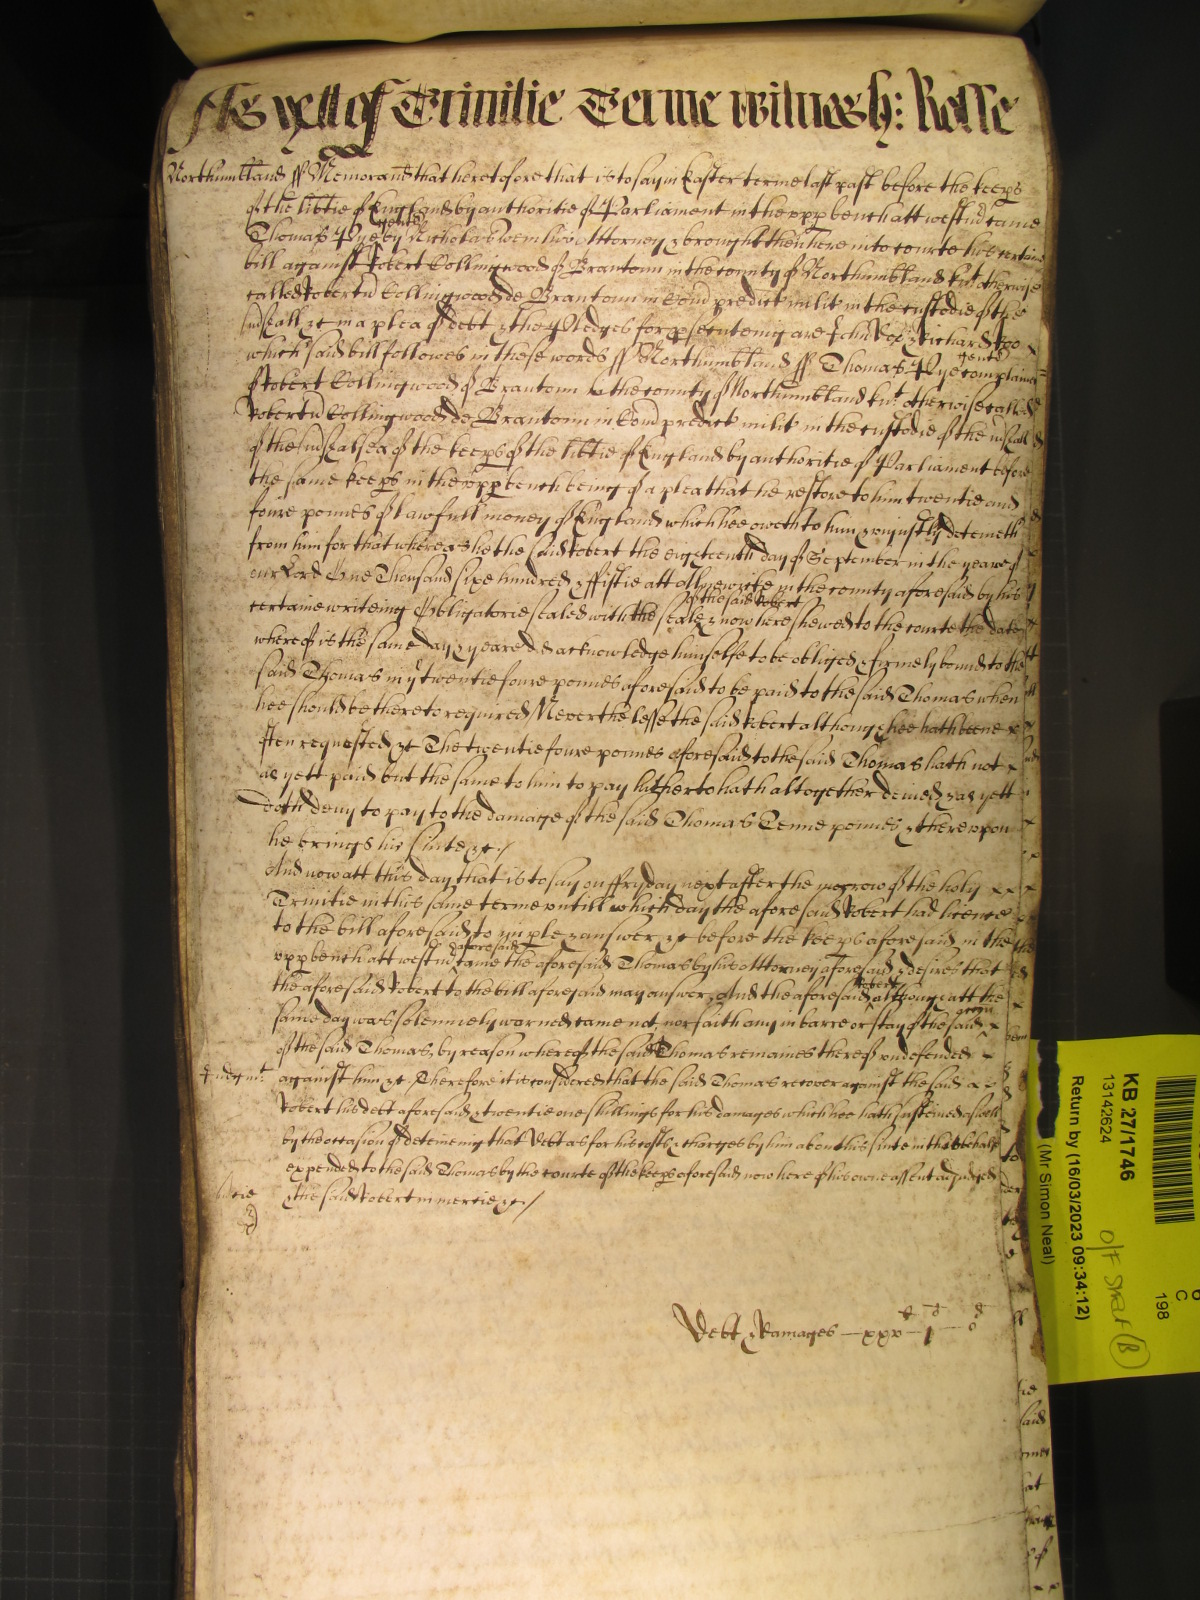 As yett of Trinitie Terme witnesh: Rolle
Northumbland ss Memorand that heretofore that is to say in Easter terme last past before the keeps
of the libtie of England by authoritie of Parliament in the upp bench att westm came
gente
Thomas Pye by Nicholas Attorney & brought then here into courte his certaine
bill against Robert Collingwood of Brantonn in the county of Northumbland knt otherwise
called Robertu Collingwood de Brantonn in Com predict milit in the custodie of the
mshall &c in a plea of debt & the Pledges for psecuteing are John Doe & Richard Roo
which said bill followes in these words ss Northumbland ss Thomas Pye gente complaines
of Robert Collingwood of Brantonn in the county of Northumbland knt otherwise called
Robertu Collingwood de Brantonn in Com predict milit in the custodie of the mshall
of the mshalsea of the keeps of the libtie of England by authoritie of Parliament before
the same keeps in the upp bench being of a plea that he restore to him twentie and
foure pounes of lawfull money of England which hee oweth to him & uniustly deteineth
from him for that whereas he the said Robert the eighteenth day of September in the yeare of
our Lord One Thousand sixe hundred & fiftie att in the county aforesaid by his
of the said Robert
certaine writeing Obligatorie sealed with the seale & now here shewed to the courte the date
whereof is the same day & yeare did acknowledge himselfe to be obliged & firmely bound to the
said Thomas in ye twentie foure pounes aforesaid to be paid to the said Thomas when
hee should be thereto required Neverthelesse the said Robert although hee hath beene
often requested &c The twentie foure pounes aforesaid to the said Thomas hath not
as yett paid but the same to him to pay hitherto hath altogether denied & as yett
doth deny to pay to the damage of the said Thomas Tenne pounes & thereupon
he brings his suite &c /
And now att this day that is to say on ffryday next after the morrow of the holy
Trinitie in this same terme untill which day the aforesaid Robert had licence
to the bill aforesaid to imple & answer &c before the keeps aforesaid in the
aforesaid
upp bench att westm came the aforesaid Thomas by his Attorney aforesaid & desires that
the aforesaid Robert to the bill aforesaid may answer, And the aforesaid Robert although att the
same day was solemnely warned came not, nor saith any in barre or stay of the said accon
of the said Thomas, by reason whereof the said Thomas remaines thereof undefended
Judgmt against him &c. Therefore it is considered that the said Thomas recover against the said
Robert his debt aforesaid & twentie one shillings for his damages which hee hath susteined aswell
by the occasion of deteineing that Debt as for his costs & charges by him about his suite in this behalfe
expended to the said Thomas by the courte of the keeps aforesaid now here of his owne assent adjudged
Mcie & the said Robert in mercie &c /
Debt & Damages — xxv l — j s — 0 d
KB 27/1746
13142624
Return by (16/03/2023 09:34:12)
(Mr Simon Neal)
O/F Shelf (B)
C
198